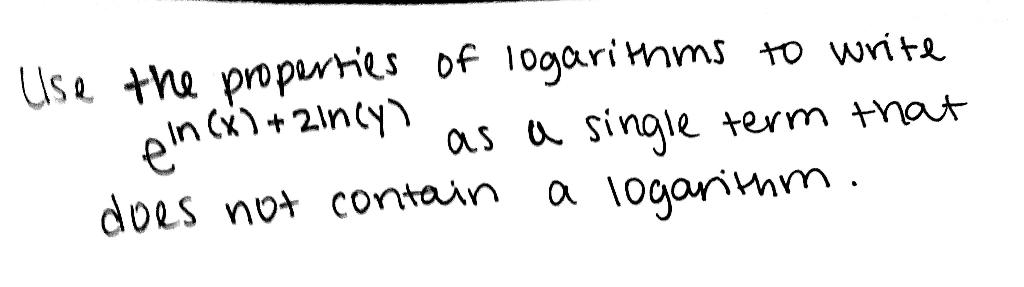 Use the properties of logarithms to write
e^{ln(x)+2ln(y)} as a single term that
does not contain a logarithm.